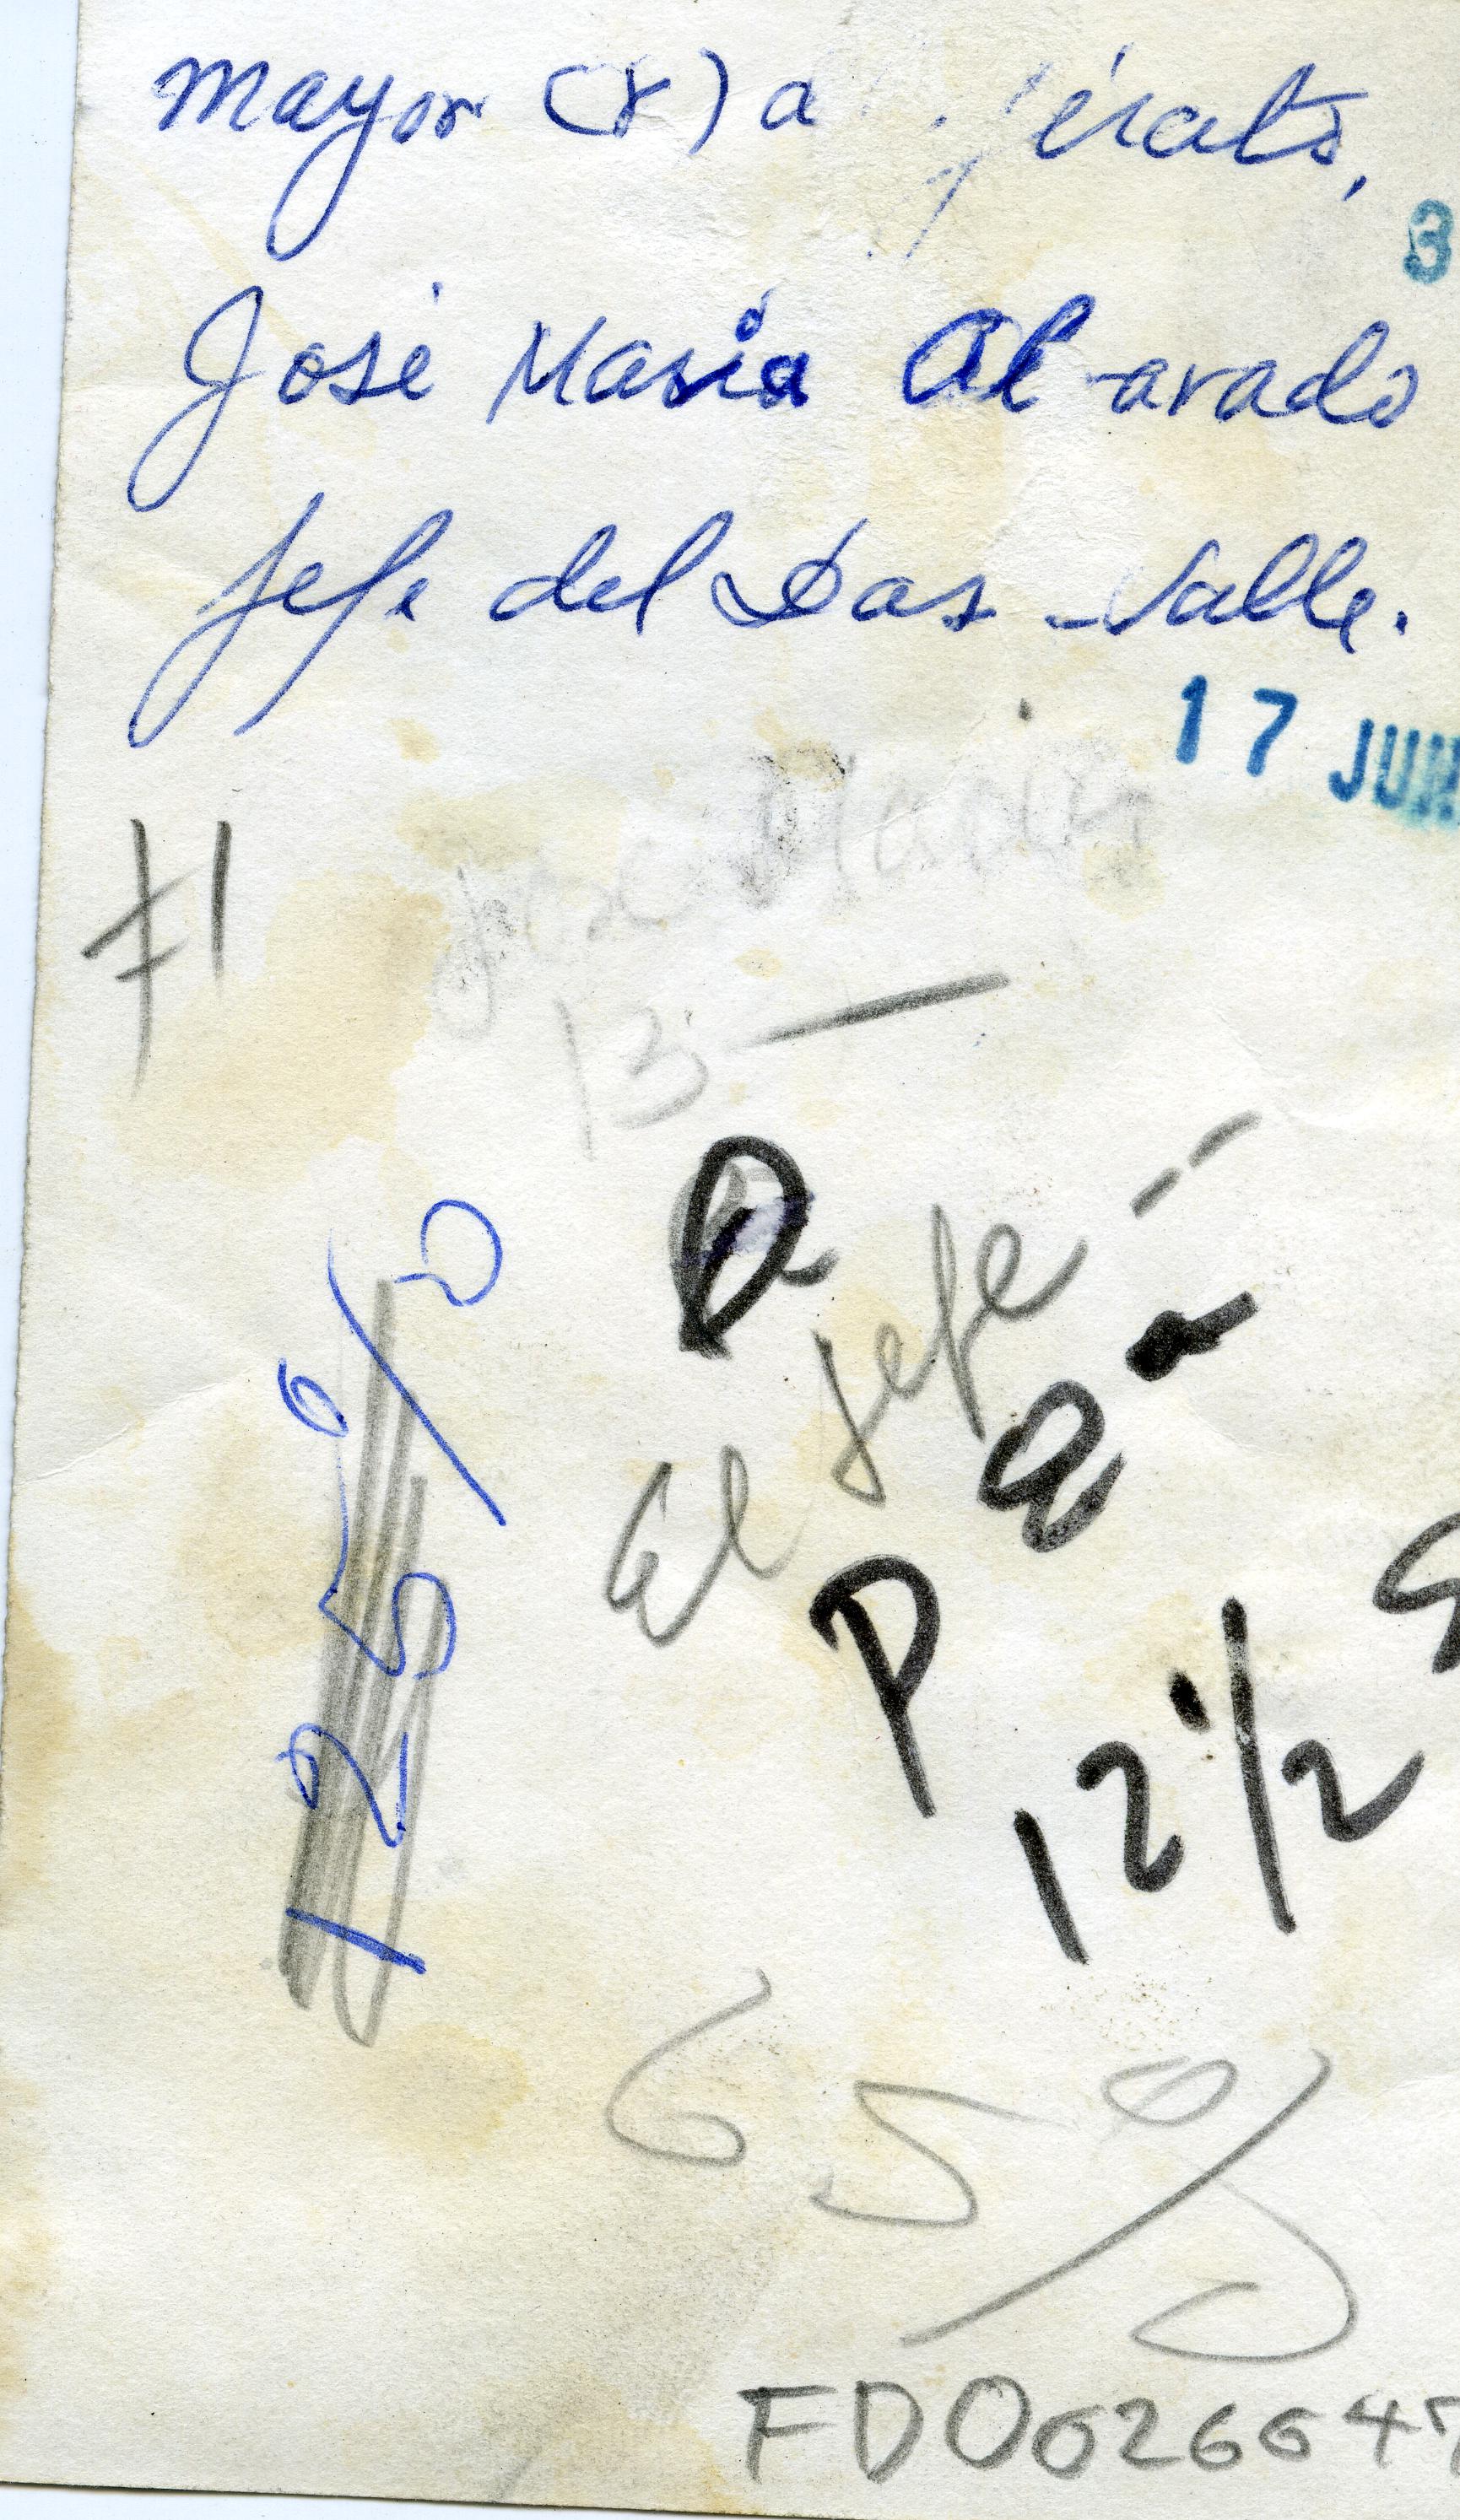 mayor (r) a
3
José María Alvarado
Jefe del Das - Valle.
17 JUN
#1
José María
13 —
125%
El Jefe
P
12 1/2
65%
FD002664